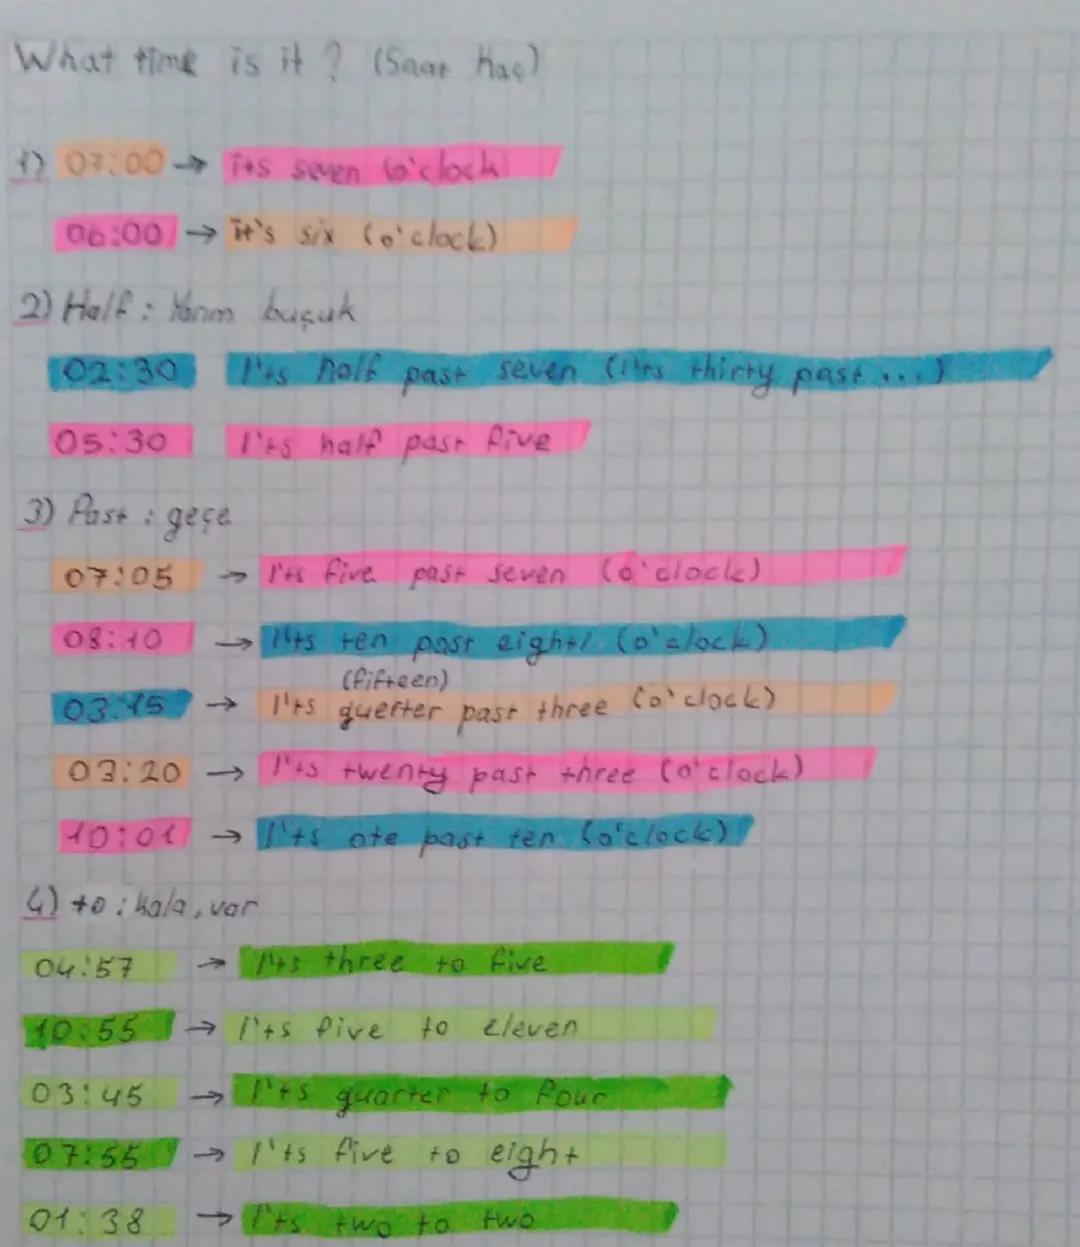 What time is it ? (Saat Kaç)
1) 07:00 → it's seven (o'clock)
06:00 → it's six (o'clock)
2) Half : Yarım buçuk
02:30 I'ts half past seven (I'ts thirty past ...)
05:30 I'ts half past five
3) Past : geçe
07:05 → I'ts five past seven (o'clock)
08:10 → I'ts ten past eight (o'clock)
(fifteen)
03:15 → I'ts querter past three (o'clock)
03:20 → I'ts twenty past three (o'clock)
10:01 → I'ts ote past ten (o'clock)
4) to : kala, var
04:57 → I'ts three to five
10:55 → I'ts five to eleven
03:45 → I'ts quarter to four
07:55 → I'ts five to eight
01:38 → I'ts two to two